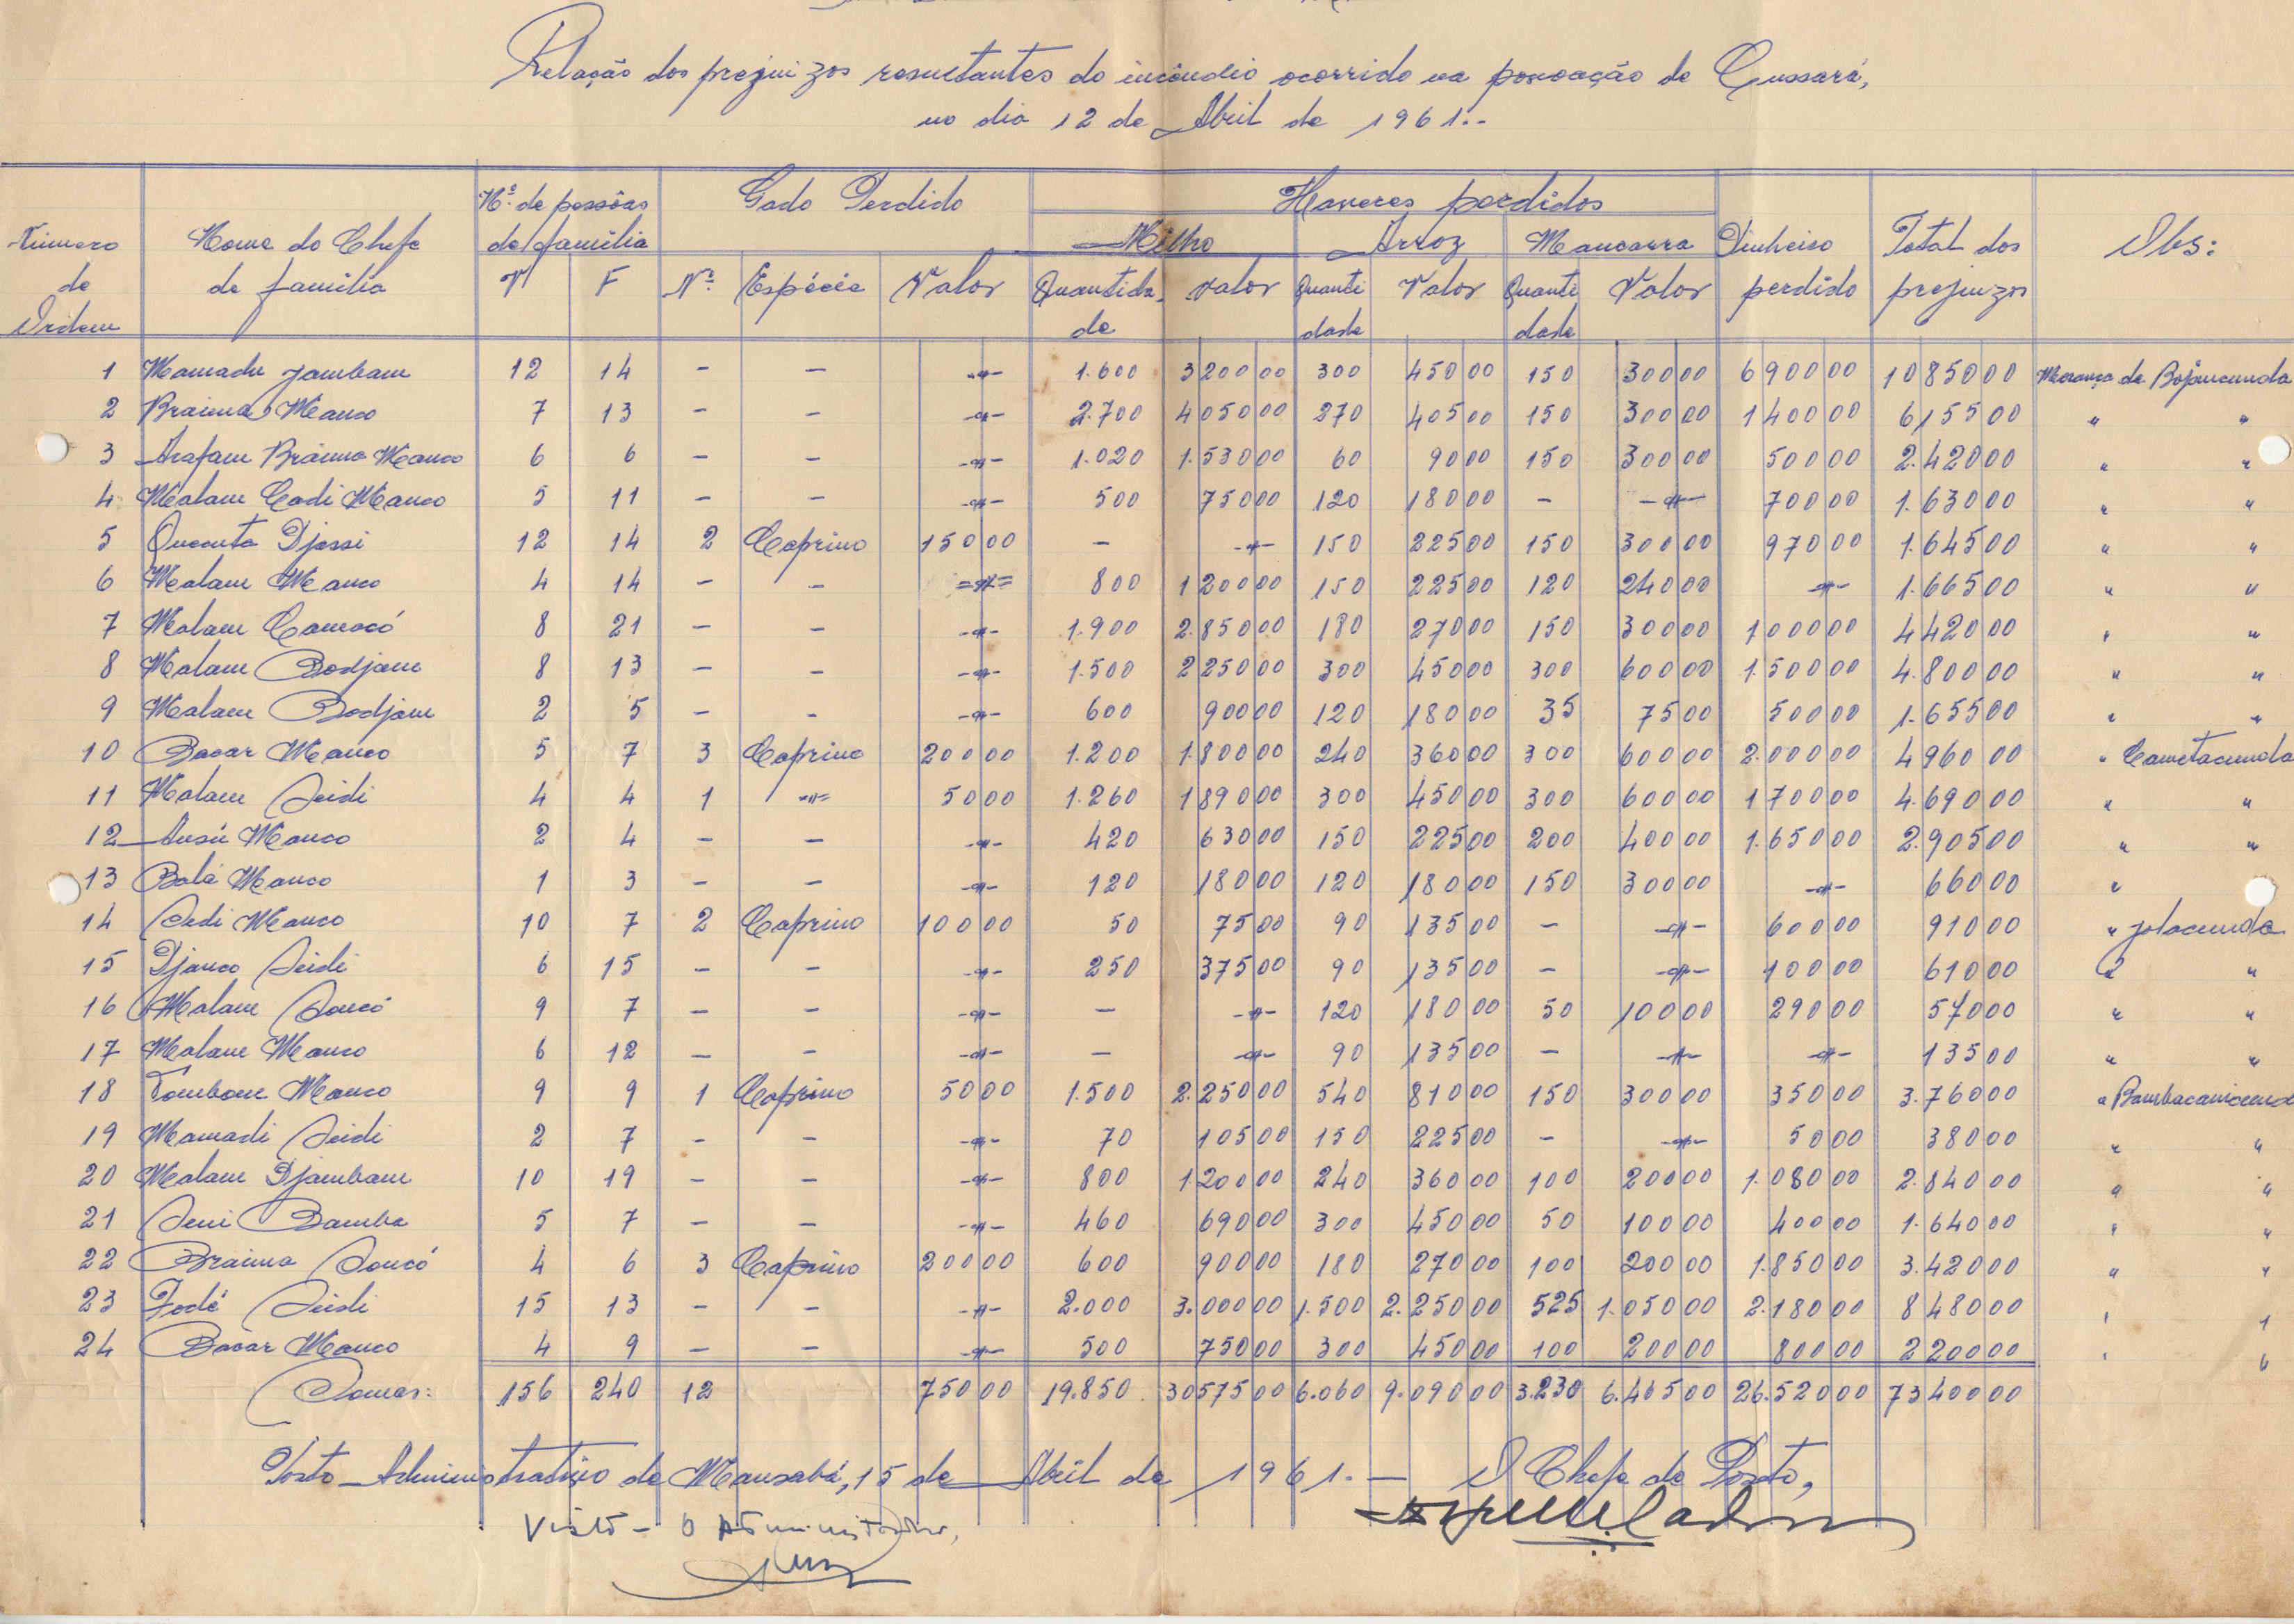 Relação dos prejuizos resultantes do incêndio ocorrido na povoação de Cussará,
no dia 12 de Abril de 1961.-
Número de Ordem | Nome do Chefe de familia | Nº de pessôas de familia | Gado Perdido | Haveres perdidos | Dinheiro perdido | Total dos prejuizos | Obs:
Milho | Arroz | Mancarra
V | F | Nº | Espécie | Valor | Quantidade | Valor | Quantidade | Valor | Quantidade | Valor
1 Mamadu Jambam 12 14 - - -"- 1.600 3200 00 300 450 00 150 300 00 6900 00 10850 00 Morança de Bojancunda
2 Braima Manco 7 13 - - -"- 2.700 4050 00 270 405 00 150 300 00 1400 00 6155 00 " "
3 Arafam Braima Manco 6 6 - - -"- 1.020 1.530 00 60 90 00 150 300 00 500 00 2.420 00 " "
4 Malam Cadi Manco 5 11 - - -"- 500 750 00 120 180 00 - -"- 700 00 1.630 00 " "
5 Quecuta Djassi 12 14 2 Caprino 150 00 - -"- 150 225 00 150 300 00 970 00 1.645 00 " "
6 Malam Manco 4 14 - - ="= 800 1200 00 150 225 00 120 240 00 -"- 1.665 00 " "
7 Malam Camacó 8 21 - - -"- 1.900 2.850 00 180 270 00 150 300 00 1000 00 4420 00 " "
8 Malam Bodjam 8 13 - - -"- 1.500 2250 00 300 450 00 300 600 00 1.500 00 4.800 00 " "
9 Malam Bodjam 2 5 - - -"- 600 900 00 120 180 00 35 75 00 500 00 1.655 00 " "
10 Bacar Manco 5 7 3 Caprino 200 00 1.200 1.800 00 240 360 00 300 600 00 2.000 00 4960 00 " Cametacunda
11 Malam Seidi 4 4 1 -"= 50 00 1.260 1890 00 300 450 00 300 600 00 1700 00 4.690 00 " "
12 Ansú Manco 2 4 - - -"- 420 630 00 150 225 00 200 400 00 1.650 00 2.905 00 " "
13 Balá Manco 1 3 - - -"- 120 180 00 120 180 00 150 300 00 -"- 660 00 "
14 Sedi Manco 10 7 2 Caprino 100 00 50 75 00 90 135 00 - -"- 600 00 910 00 " Jolacunda
15 Djanco Seidi 6 15 - - -"- 250 375 00 90 135 00 - -"- 100 00 610 00 " "
16 Malam Soncó 9 7 - - -"- - -"- 120 180 00 50 100 00 290 00 570 00 " "
17 Malam Manco 6 12 - - -"- - -"- 90 135 00 - -"- -"- 135 00 " "
18 Tombom Manco 9 9 1 Caprino 50 00 1.500 2.250 00 540 810 00 150 300 00 350 00 3.760 00 "
19 Mamadi Seidi 2 7 - - -"- 70 105 00 150 225 00 - -"- 50 00 380 00 " "
20 Malam Djambam 10 19 - - -"- 800 1200 00 240 360 00 100 200 00 1.080 00 2.840 00 " "
21 Seni Bamba 5 7 - - -"- 460 690 00 300 450 00 50 100 00 400 00 1.640 00 " "
22 Braima Soncó 4 6 3 Caprino 200 00 600 900 00 180 270 00 100 200 00 1.850 00 3.420 00 " "
23 Fodé Seidi 15 13 - - -"- 2.000 3.000 00 1.500 2.250 00 525 1.050 00 2.180 00 8480 00 " "
24 Bacar Manco 4 9 - - -"- 500 750 00 300 450 00 100 200 00 800 00 2200 00 " "
Somas: 156 240 12 750 00 19.850 30575 00 6.060 9.090 00 3.230 6.465 00 26.520 00 73400 00
Posto Administrativo de Mansabá, 15 de Abril de 1961.- O Chefe de Posto,
Visto - O Administrador,